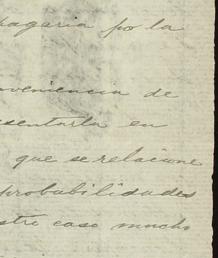 pagaria por la
nveniencia de
esentarla en
que se relacione
probabilidades
stro caso mucho